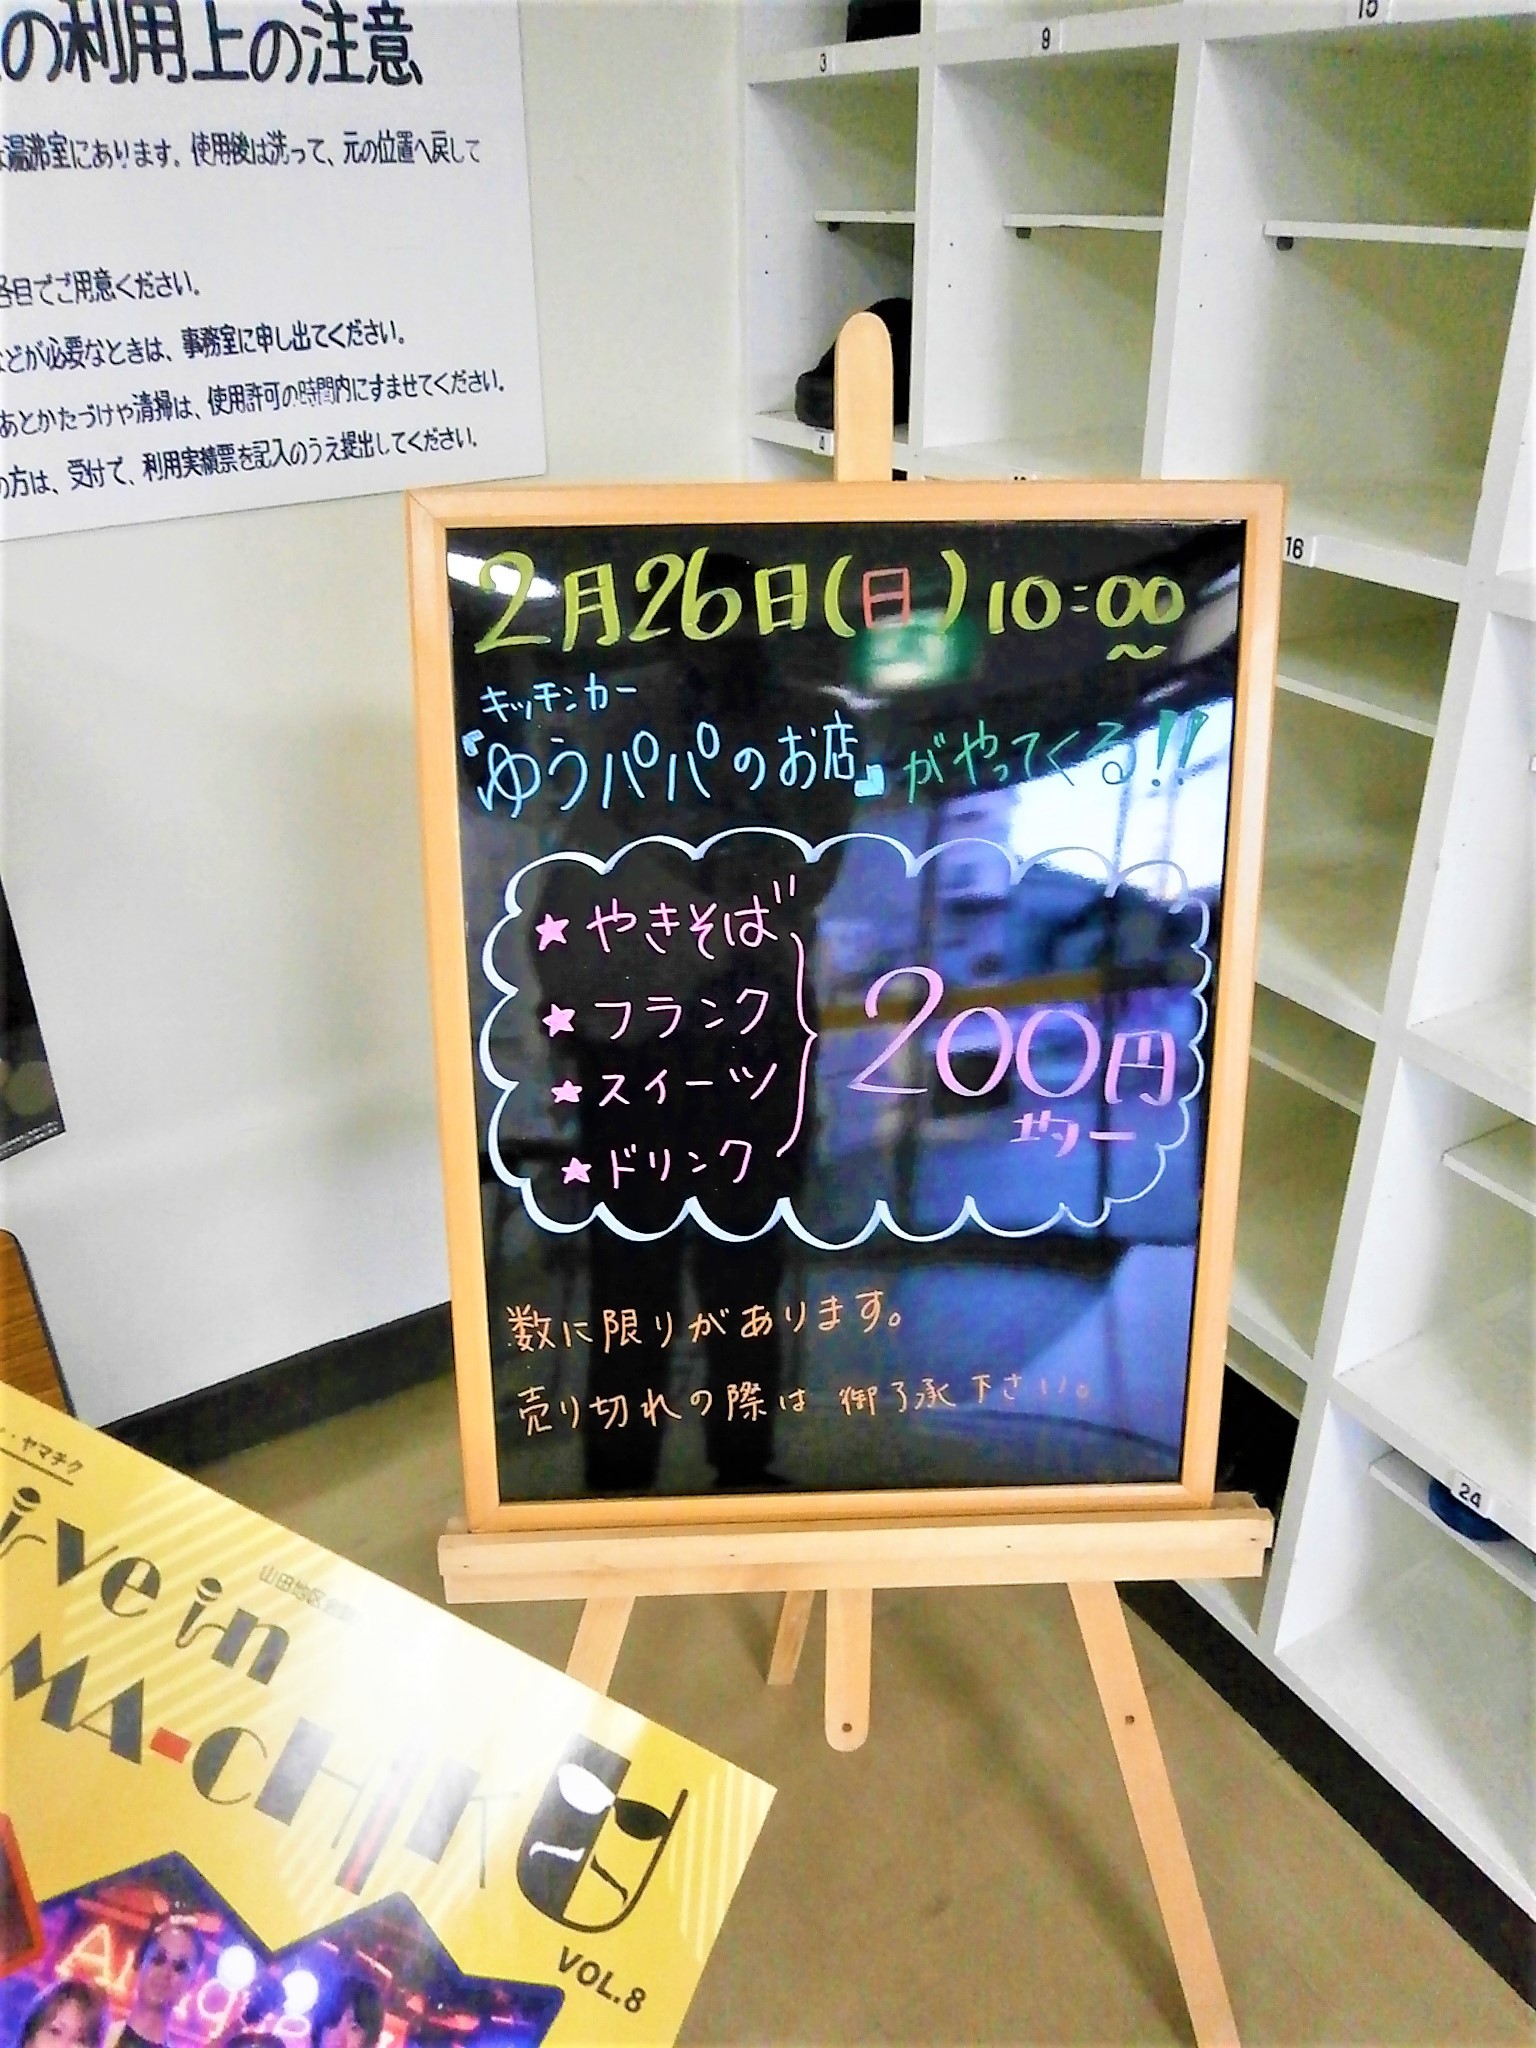 の利用上の注意
湯沸室にあります。使用後は洗って、元の位置へ戻して
各自でご用意ください。
などが必要なときは、事務室に申し出てください。
あとかたづけや清掃は、使用許可の時間内にすませてください。
の方は、受付で、利用実績票を記入のうえ提出してください。
3
9
15
4
16
24
2月26日(日)10:00
~
キッチンカー
『ゆうパパのお店』がやってくる!!
★やきそば
★フランク
★スイーツ
★ドリンク
200円
均一
数に限りがあります。
売り切れの際は御了承下さい。
・ヤマチク
ive in
山田地区
MA-CHIKU
VOL.8